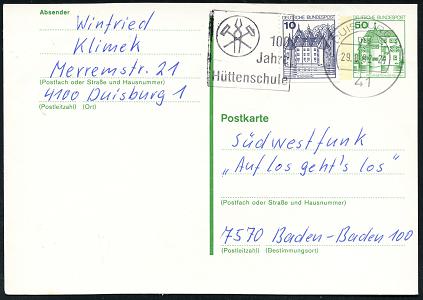 Absender
Winfried
Klimek
Merremstr. 21
(Postfach oder Straße und Hausnummer)
4100 Duisburg 1
(Postleitzahl) (Ort)
100
Jahre
Hüttenschule
10
DEUTSCHE BUNDESPOST
DEUTSCHE BUNDESPOST
50
29.
41
Postkarte
Südwestfunk
„Auf los geht's los"
(Postfach oder Straße und Hausnummer)
7570 Baden-Baden 100
(Postleitzahl) (Bestimmungsort)